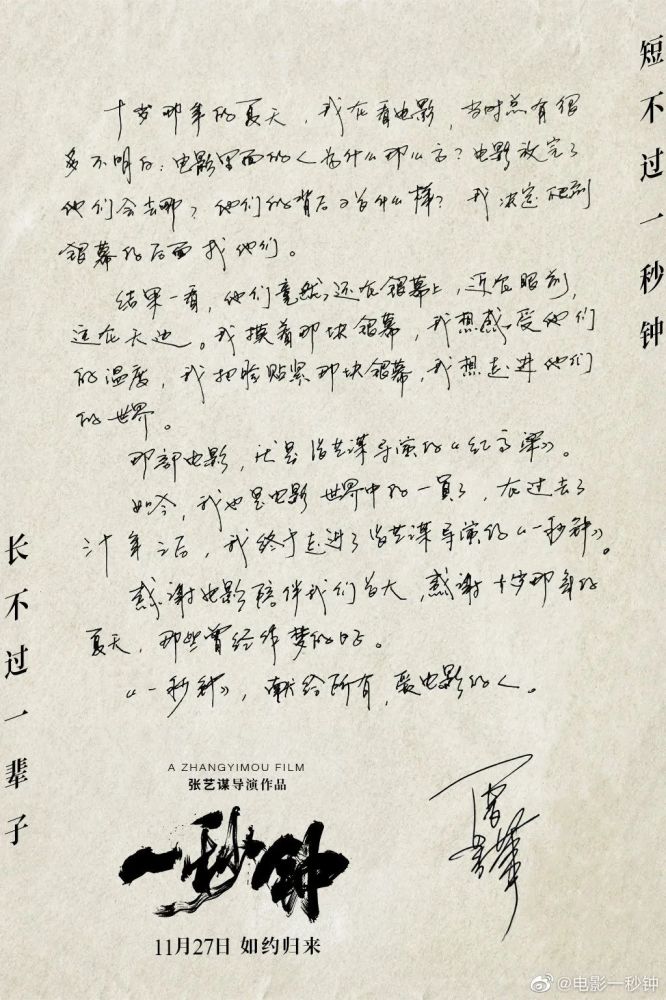 短不过一秒钟
十岁那年的夏天，我在看电影，当时总有很
多不明白：电影里面的人为什么那么？电影放完了
他们会去哪？他们的背后又为什么样？我决定跑到
银幕的后面找他们。
结果一看，他们竟然还在银幕上，近在眼前，
远在天边。我摸着那块银幕，我想感受他们
的温度，我把脸贴紧那块银幕，我想走进他们
的世界。
那部电影，就是张艺谋导演的《红高粱》。
如今，我也是电影世界中的一员了，在过去了
卅年之后，我终于走进了张艺谋导演的《一秒钟》。
感谢电影陪伴我们长大，感谢十岁那年的
夏天，那些曾经作梦的日子。
《一秒钟》，献给所有爱电影的人。
长不过一辈子
A ZHANGYIMOU FILM
张艺谋导演作品
一秒钟
11月27日 如约归来
@电影一秒钟